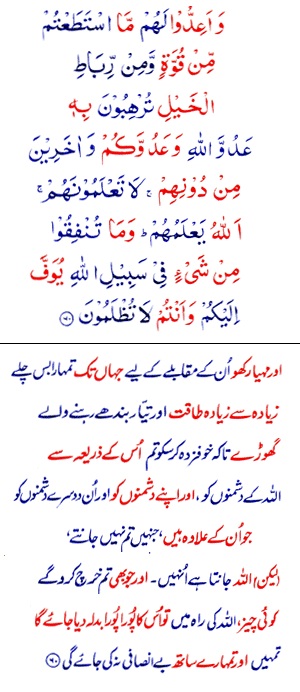 وَاَعِدُّوْا لَهُمْ مَّا اسْتَطَعْتُمْ
مِّنْ قُوَّةٍ وَّمِنْ رِّبَاطِ
الْخَيْلِ تُرْهِبُوْنَ بِهٖ
عَدُوَّ اللّٰهِ وَعَدُوَّكُمْ وَاٰخَرِيْنَ
مِنْ دُوْنِهِمْ ۚ لَا تَعْلَمُوْنَهُمْ ۚ
اَللّٰهُ يَعْلَمُهُمْ ؕ وَمَا تُنْفِقُوْا
مِنْ شَىْءٍ فِىْ سَبِيْلِ اللّٰهِ يُوَفَّ
اِلَيْكُمْ وَاَنْتُمْ لَا تُظْلَمُوْنَ ﴿۶۰﴾
اور مہیا رکھو اُن کے مقابلے کے لیے جہاں تک تمہارا بس چلے
زیادہ سے زیادہ طاقت اور تیّار بندھے رہنے والے
گھوڑے تاکہ خوفزدہ کر سکو تم اُس کے ذریعہ سے
اللہ کے دشمنوں کو، اور اپنے دشمنوں کو اور اُن دوسرے دشمنوں کو
جو اُن کے علاوہ ہیں، جنہیں تم نہیں جانتے،
(لیکن) اللہ جانتا ہے اُنہیں۔ اور جو بھی تم خرچ کرو گے
کوئی چیز، اللہ کی راہ میں تو اُس کا پُورا پُورا بدلہ دیا جائے گا
تمہیں اور تمہارے ساتھ بے انصافی نہ کی جائے گی ﴿۶۰﴾